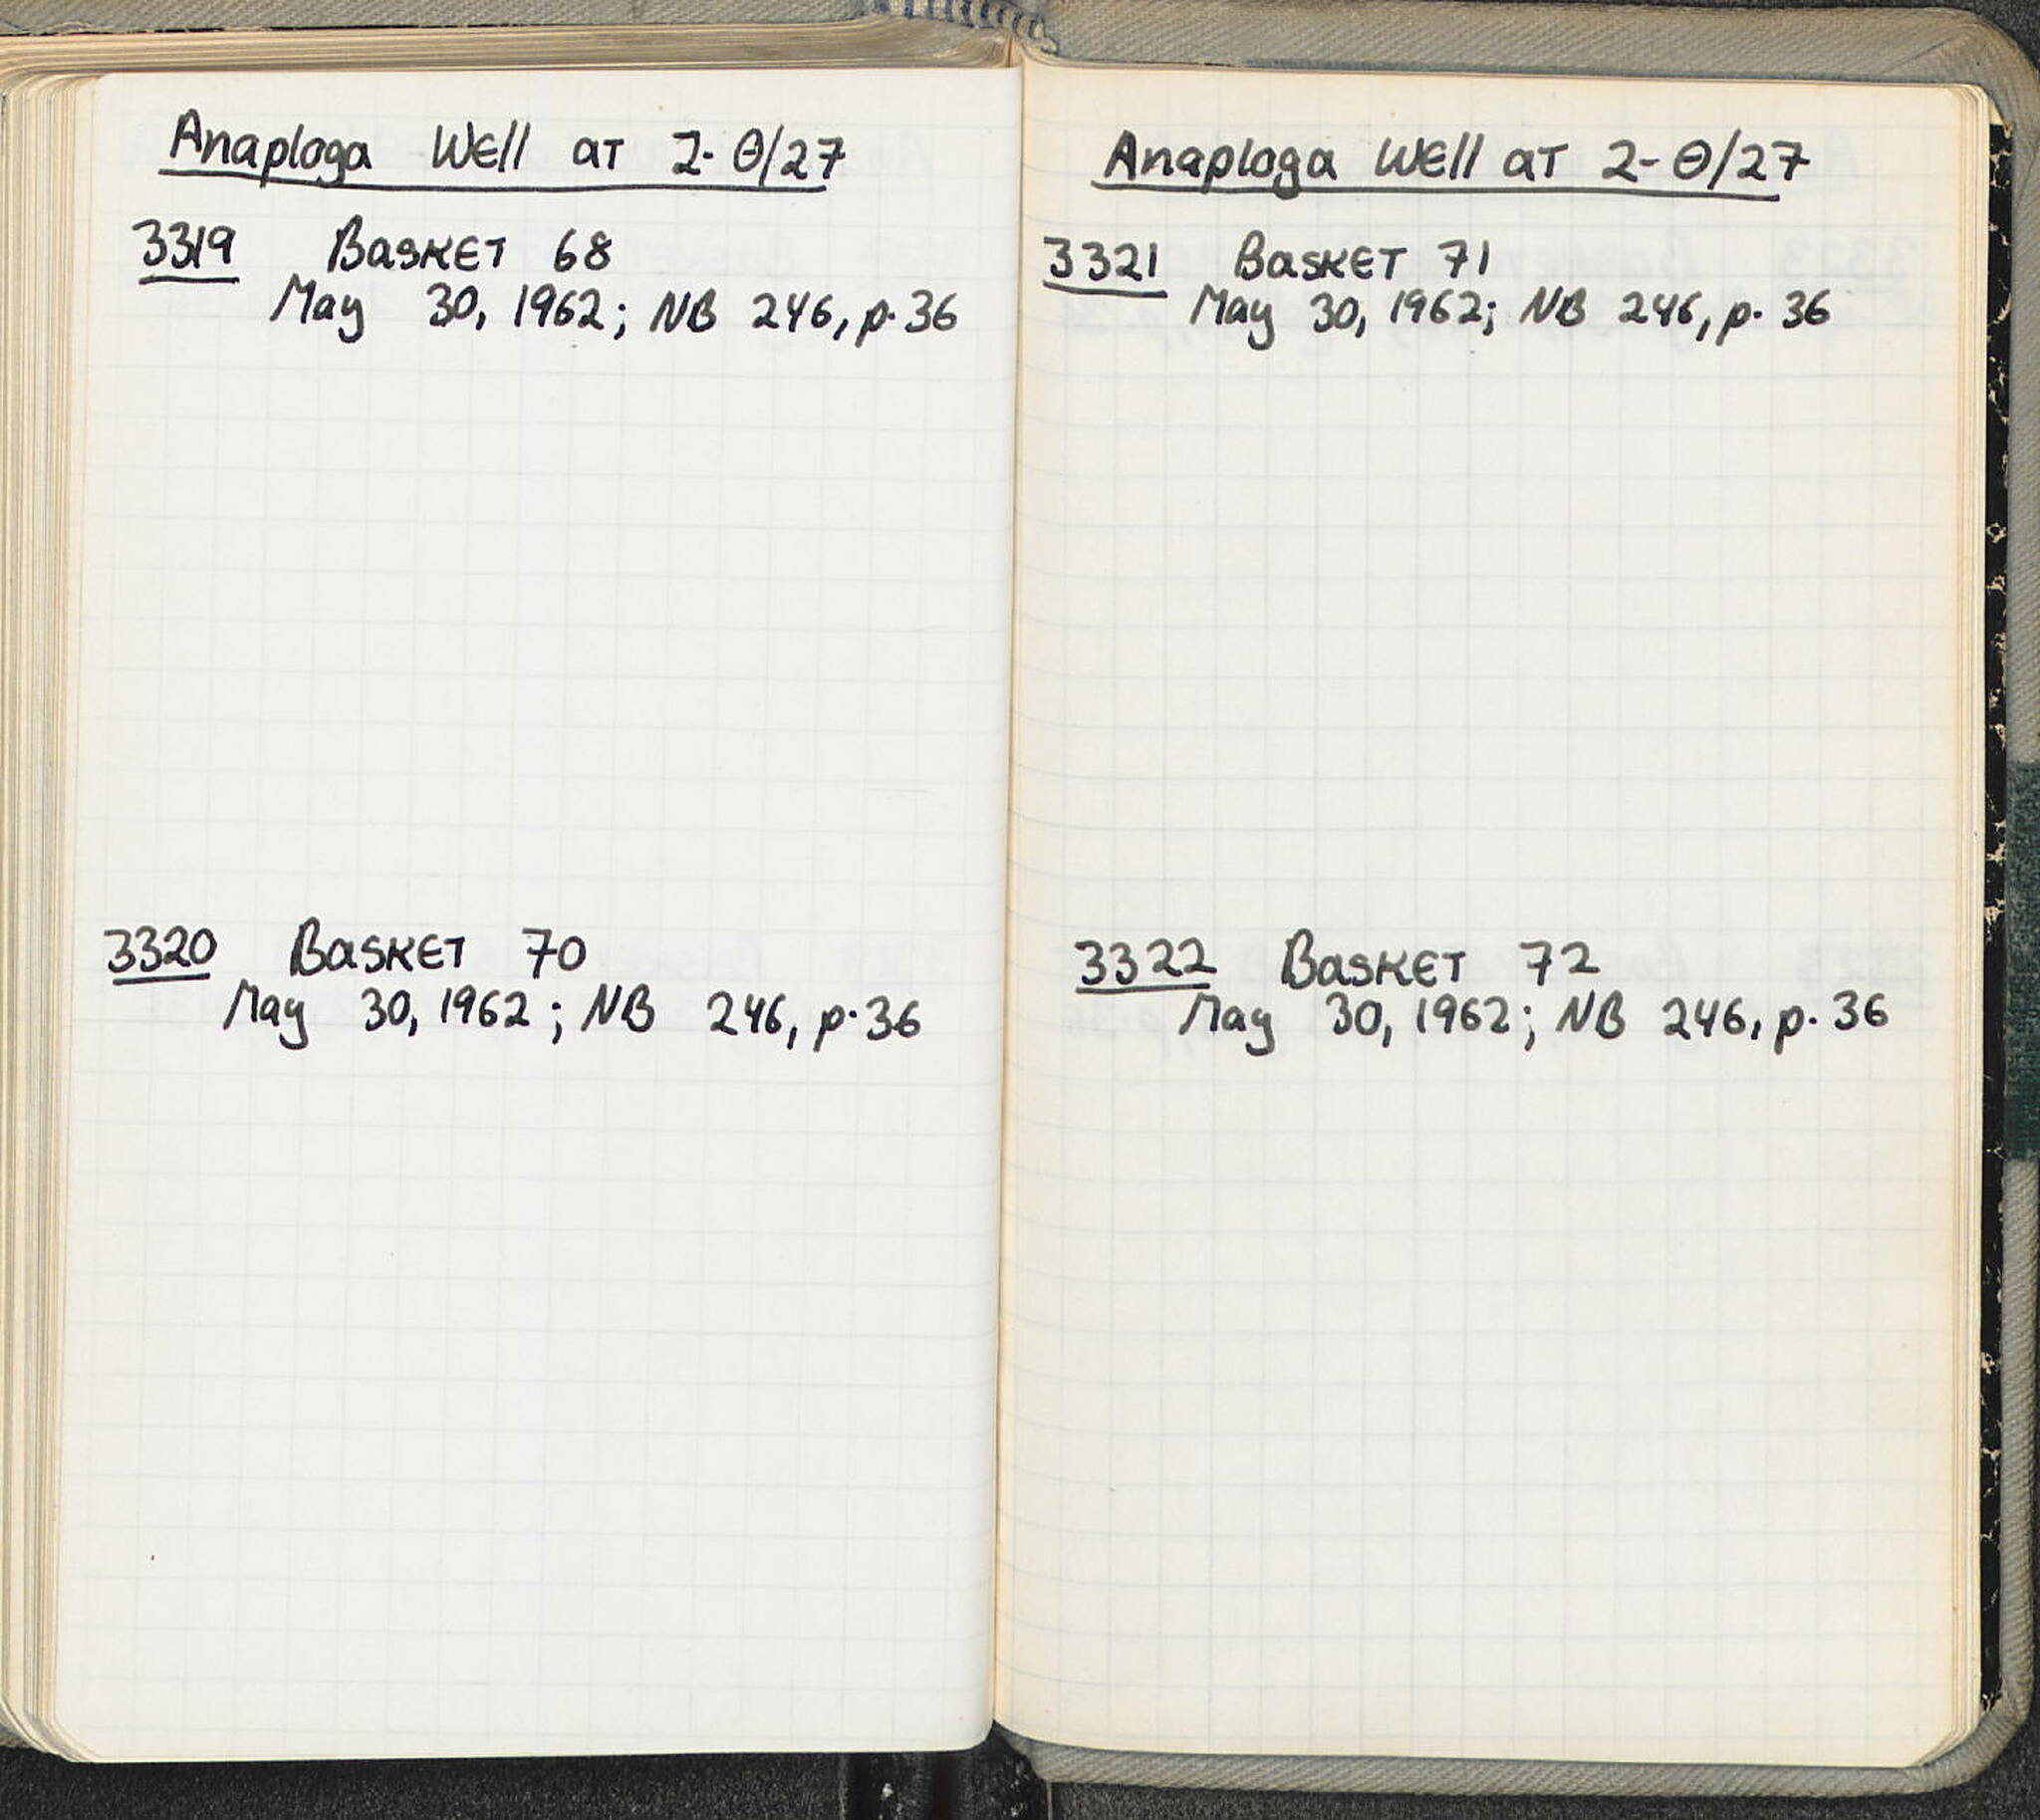 Anaploga Well at 2-Θ/27
3319 Basket 68
May 30, 1962; NB 246, p. 36
3320 Basket 70
May 30, 1962; NB 246, p. 36
Anaploga Well at 2-Θ/27
3321 Basket 71
May 30, 1962; NB 246, p. 36
3322 Basket 72
May 30, 1962; NB 246, p. 36